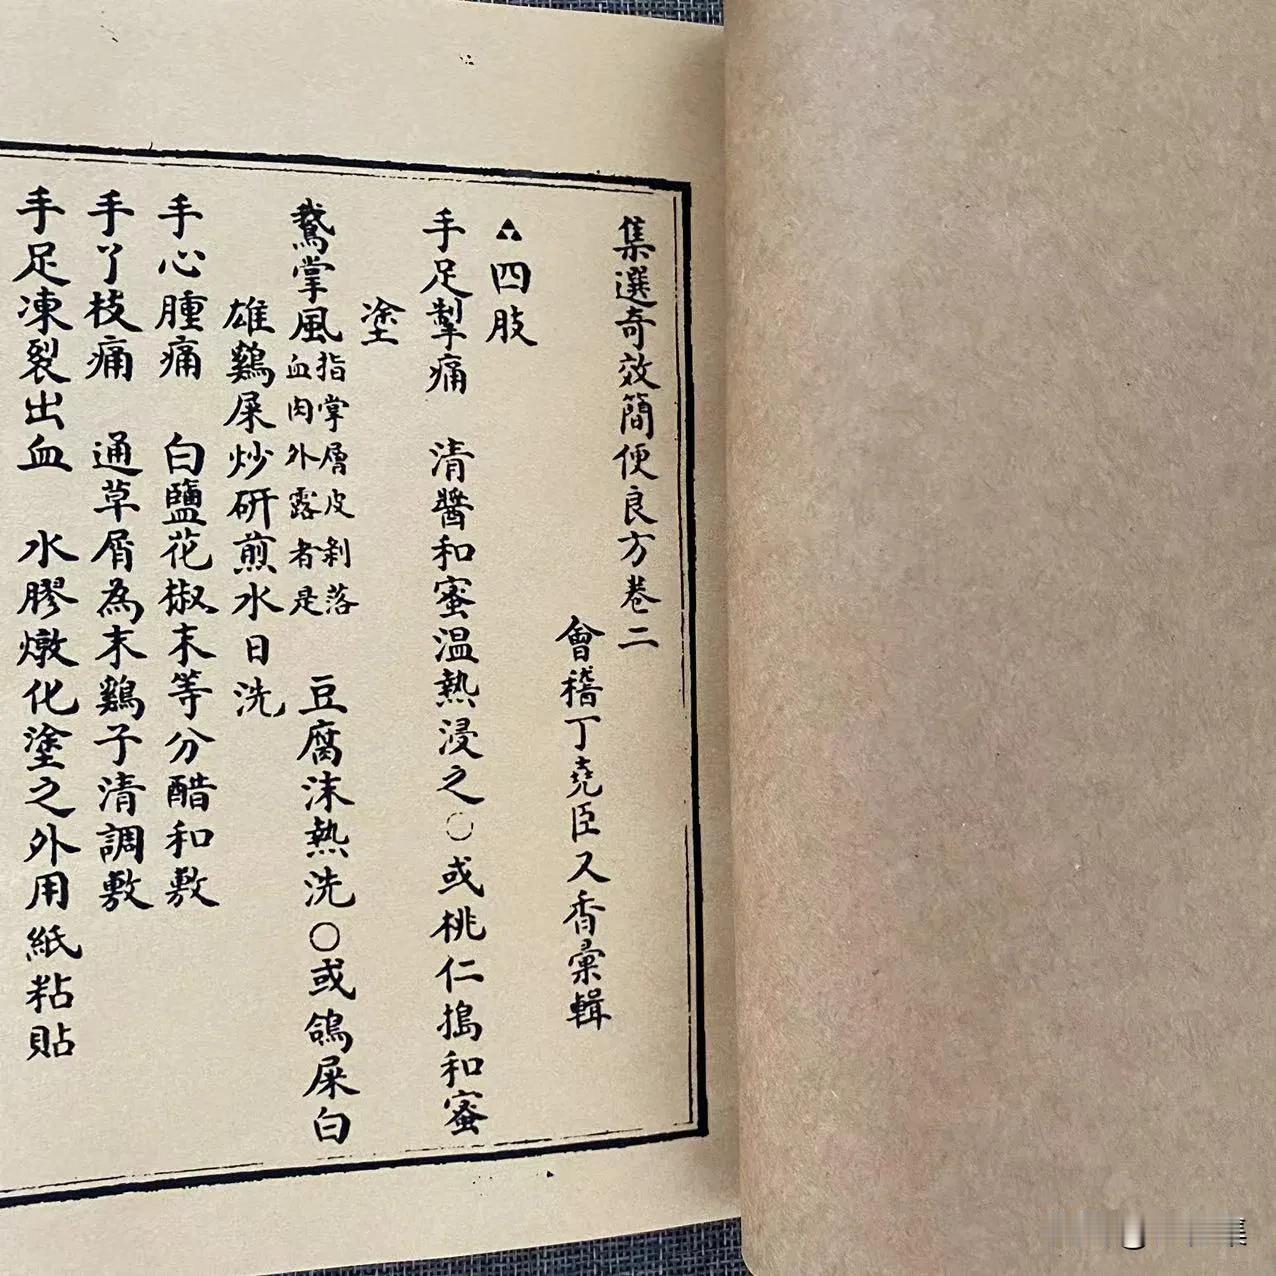 集選奇效簡便良方卷二
會稽丁堯臣又香彙輯
四肢
手足掣痛　清醬和蜜温熱浸之○或桃仁搗和蜜
塗
鵞掌風指掌層皮剥落血肉外露者是　豆腐沫熱洗○或鴿屎白
雄鷄屎炒研煎水日洗
手心腫痛　白鹽花椒末等分醋和敷
手丫枝痛　通草屑為末鷄子清調敷
手足凍裂出血　水膠燉化塗之外用紙粘貼